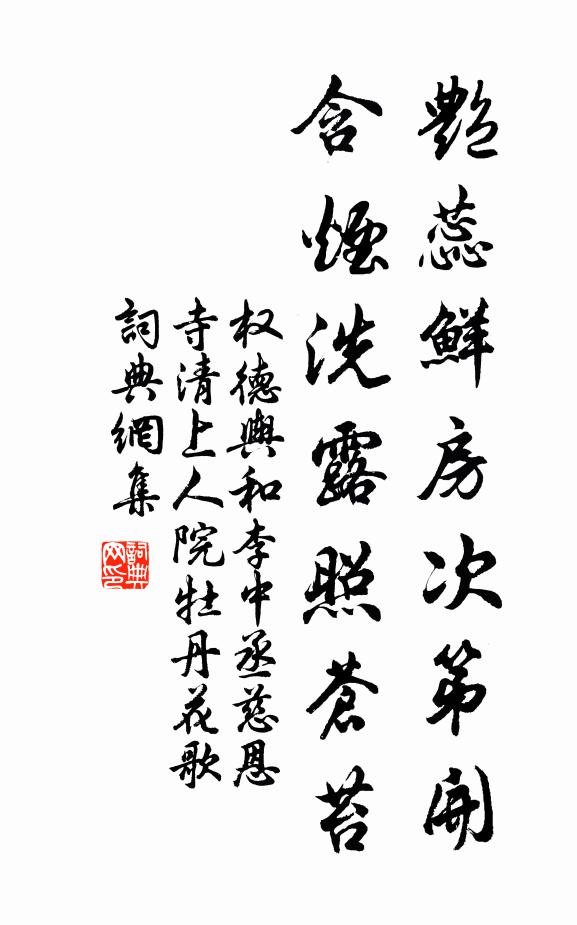 艷蕊鮮房次第開
含煙洗露照蒼苔
权德輿和李中丞慈恩
寺清上人院牡丹花歌
詞典網集
詞典網印